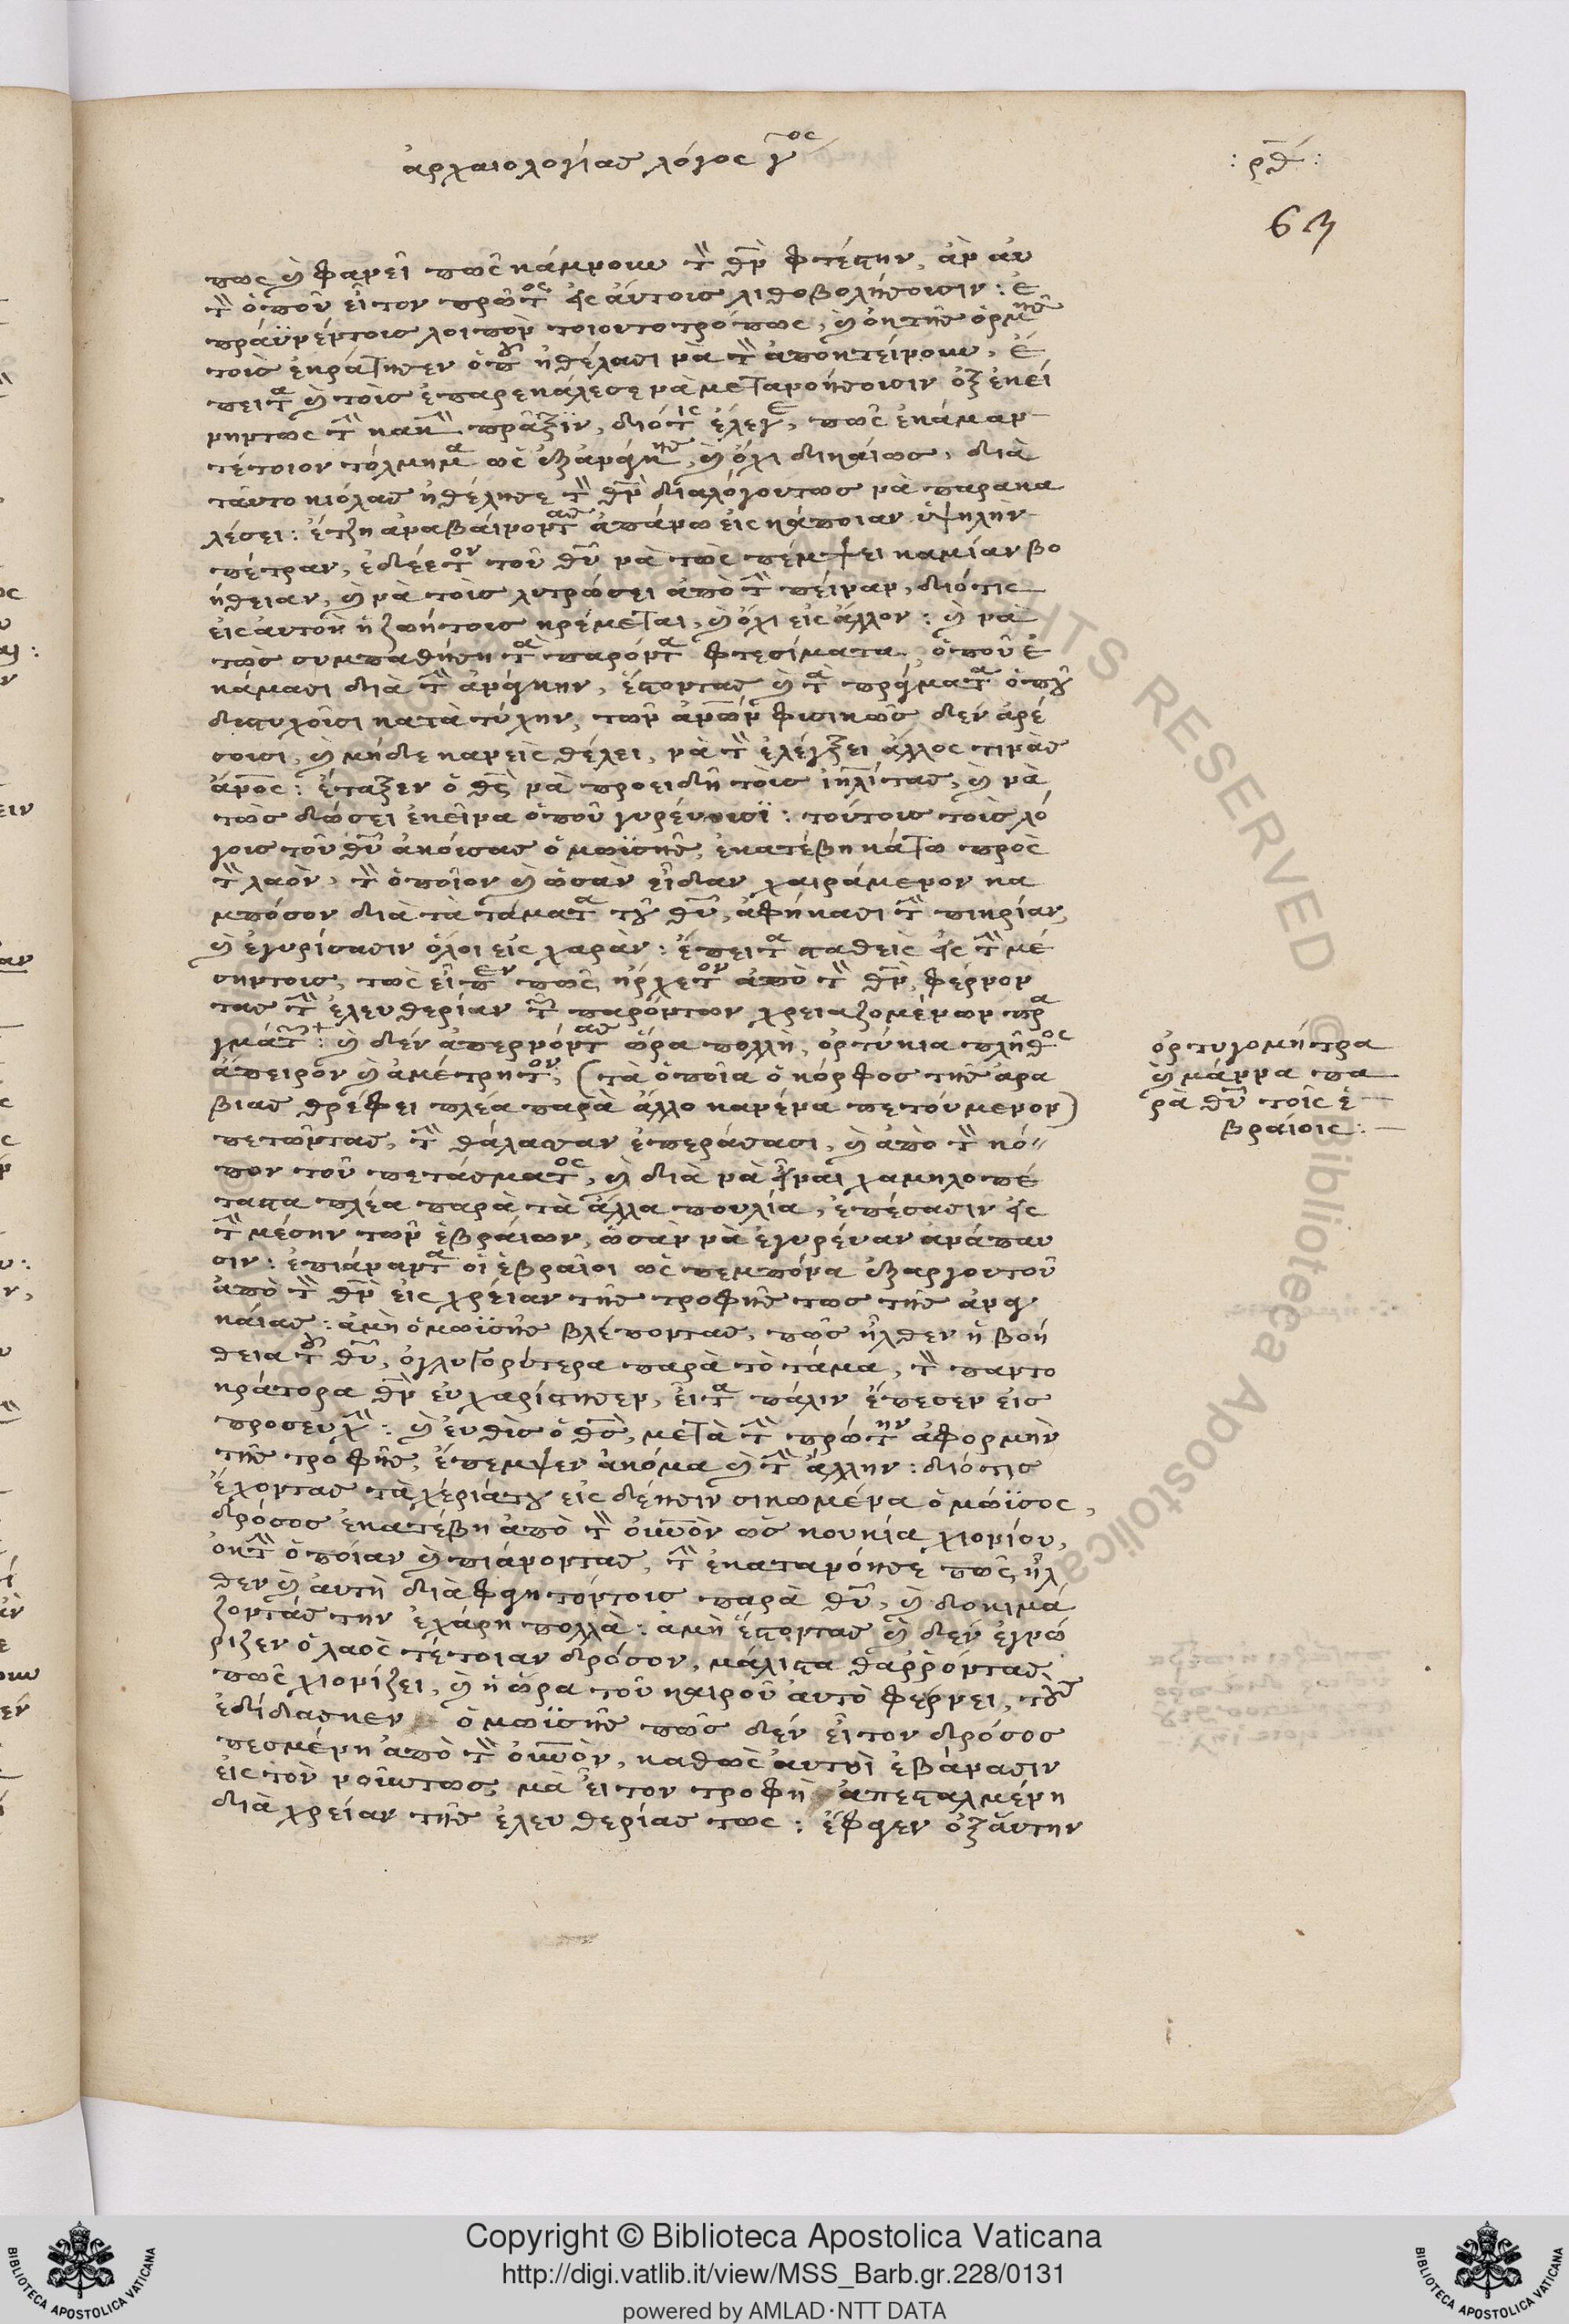 ἀρχαιολογίας λόγος γ^ος
: ρθ :
63
πως καὶ φανεῖ πῶς κάμνουν τὸν θν φτέστην, ἂν αὐ
τὸν ὁποῦ εἶτον πρῶτος εἰς αὐτοὺς λιθοβολήσουσιν : ἐ
πράϋνέν τους λοιπὸν τοιουτοτρόπως, καὶ ἐκ τῆς ὁρμῆς
τοὺς ἐκράτησεν ὁποῦ ἠθέλασι νὰ τὸν ἀποκτείνουν, ἔ
πειτα καὶ τοὺς ἐπαρεκάλεσε νὰ μετανοήσουσιν ὀξ ἐκεί
νην τως τὴν κακὴν πρᾶξιν, διότις ἔλεγε, πῶς ἐκάμαν
τέτοιον τόλμημα ὡς ἐξ ἀνάγκης, καὶ ὄχι δικαίως, διὰ
ταῦτο κιόλας ἠθέλησε τὸν θν διαλόγου τως νὰ παρακα
λέσει : ἔτζη ἀναβαίνοντας ἀπάνω εἰς κάποιαν ὑψηλὴν
πέτραν, ἐδέετον τοῦ θυ νὰ τῶς πέμψει καμίαν βο
ήθειαν, καὶ νὰ τοὺς λυτρώσει ἀπὸ τὴν πεῖναν, διότις
εἰς αὐτὸν ἡ ζωή τους κρέμεται, καὶ ὄχι εἰς ἄλλον : καὶ νὰ
τῶς συμπαθήση τὰ παρόντα φτεσίματα, ὁποῦ ἐ
κάμασι διὰ τὴν ἀνάγκην, ἔστοντας καὶ τὰ πράγματα ὁποῦ
δυστυχοῦσι κατὰ τύχην, τῶν ἀνων φυσικῶς δὲν ἀρέ
σουσι, καὶ μηδὲ κανεὶς θέλει, νὰ τὸν ἐλέγξει ἄλλος τινὰς
ἄνος : ἔταξεν ὁ θς νὰ προειδῆ τοὺς ἰηλίτας, καὶ νὰ
τῶς δώσει ἐκεῖνα ὁποῦ γυρεύουσι : τούτους τοὺς λό
γους τοῦ θυ ἀκούσας ὁ μωϋσῆς, ἐκατέβη κάτω πρὸς
τὸν λαὸν, τὸν ὁποῖον καὶ ὡσὰν εἶδαν χαιράμενον κα
μπόσον διὰ τὰ τάματα τοῦ θυ, ἀφήκασι τὴν πικρίαν
καὶ ἐγυρίσασιν ὅλοι εἰς χαρὰν : ἔπειτα σταθεὶς εἰς τὴν μέ
σην τους, τῶς εἶπεν πῶς ἤρχετον ἀπὸ τὸν θν, φέρνον
τας τὴν ἐλευθερίαν τῶν παρόντων χρειαζομένων πρα
γμάτων : καὶ δὲν ἀπερνόντας ὥρα πολλὴ, ὀρτύκια πλῆθος
ἄπειρον καὶ ἀμέτρητον, (τὰ ὁποῖα ὁ κόρφος τῆς ἀρα
βίας θρέφει πλέα παρὰ ἄλλο κανένα πετούμενον)
πετῶντας, τὴν θάλασσαν ἐπεράσασι, καὶ ἀπὸ τὸν κό-
πον τοῦ πετάσματος, καὶ διὰ νὰ εἶναι χαμηλοπέ
ταστα πλέα παρὰ τὰ ἄλλα πουλία, ἐπέσασιν εἰς
τὴν μέσην τῶν ἑβραίων, ὡσὰν νὰ ἐγυρέυαν ἀνάπαυ
σιν : ἐπιάναντα οἱ ἑβραῖοι ὡς πεμπόνα ἐξαργουτοῦ
ἀπὸ τὸν θν εἰς χρείαν τῆς τροφῆς τως τῆς ἀναγ
καίας : ἀμὴ ὁ μωϋσῆς βλέποντας, πῶς ἦλθεν ἡ βοή
θεια τοῦ θυ, ὀγλυγορύτερα παρὰ τὸ τάμα, τὸν παντο
κράτορα θν εὐχαρίστησεν, εἶτα πάλιν ἔπεσεν εἰς
προσευχὴν : καὶ εὐθὺς ὁ θς, μετὰ τὴν πρώτην ἀφορμὴν
τῆς τροφῆς, ἔπεμψεν ἀκόμα καὶ τὴν ἄλλην : διότις
ἔχοντας τὰ χέριά του εἰς δέησιν σικωμένα ὁ μωϋσος,
δρόσος ἐκατέβη ἀπὸ τὸν οὐνὸν ὡς κουκία χιονίου,
ἐκ τὴν ὁποίαν καὶ πιάνοντας, τὴν ἐκατανόησε πῶς ἦλ
θεν καὶ αὐτὴ διὰ φαγητόν τους παρὰ θυ, καὶ δοκιμά
ζοντάς την ἐχάρη πολλὰ : ἀμὴ ἔστοντας καὶ δὲν ἐγνώ
ριζεν ὁ λαὸς τέτοιαν δρόσον, μάλιστα θαῤῥόντας
πῶς χιονίζει, καὶ ἡ ὥρα τοῦ καιροῦ αὐτὸ φέρνει, τοὺς
ἐδίδασκεν ὁ μωϋσῆς πῶς δὲν εἶτον δρόσος
πεσμένη ἀπὸ τὸν οὐνὸν, καθὼς αὐτοὶ ἐβάνασιν
εἰς τὸν νοῦν τως, μὰ εἶτον τροφὴ ἀπεσταλμένη
διὰ χρείαν τῆς ἐλευθερίας τως : ἔφαγεν ὀξ αὐτην
ὀρτυγομήτρα
καὶ μάννα πα
ρὰ θυ τοῖς ἑ
βραίοις :
Copyright © Biblioteca Apostolica Vaticana
http://digi.vatlib.it/view/MSS_Barb.gr.228/0131
powered by AMLAD·NTT DATA